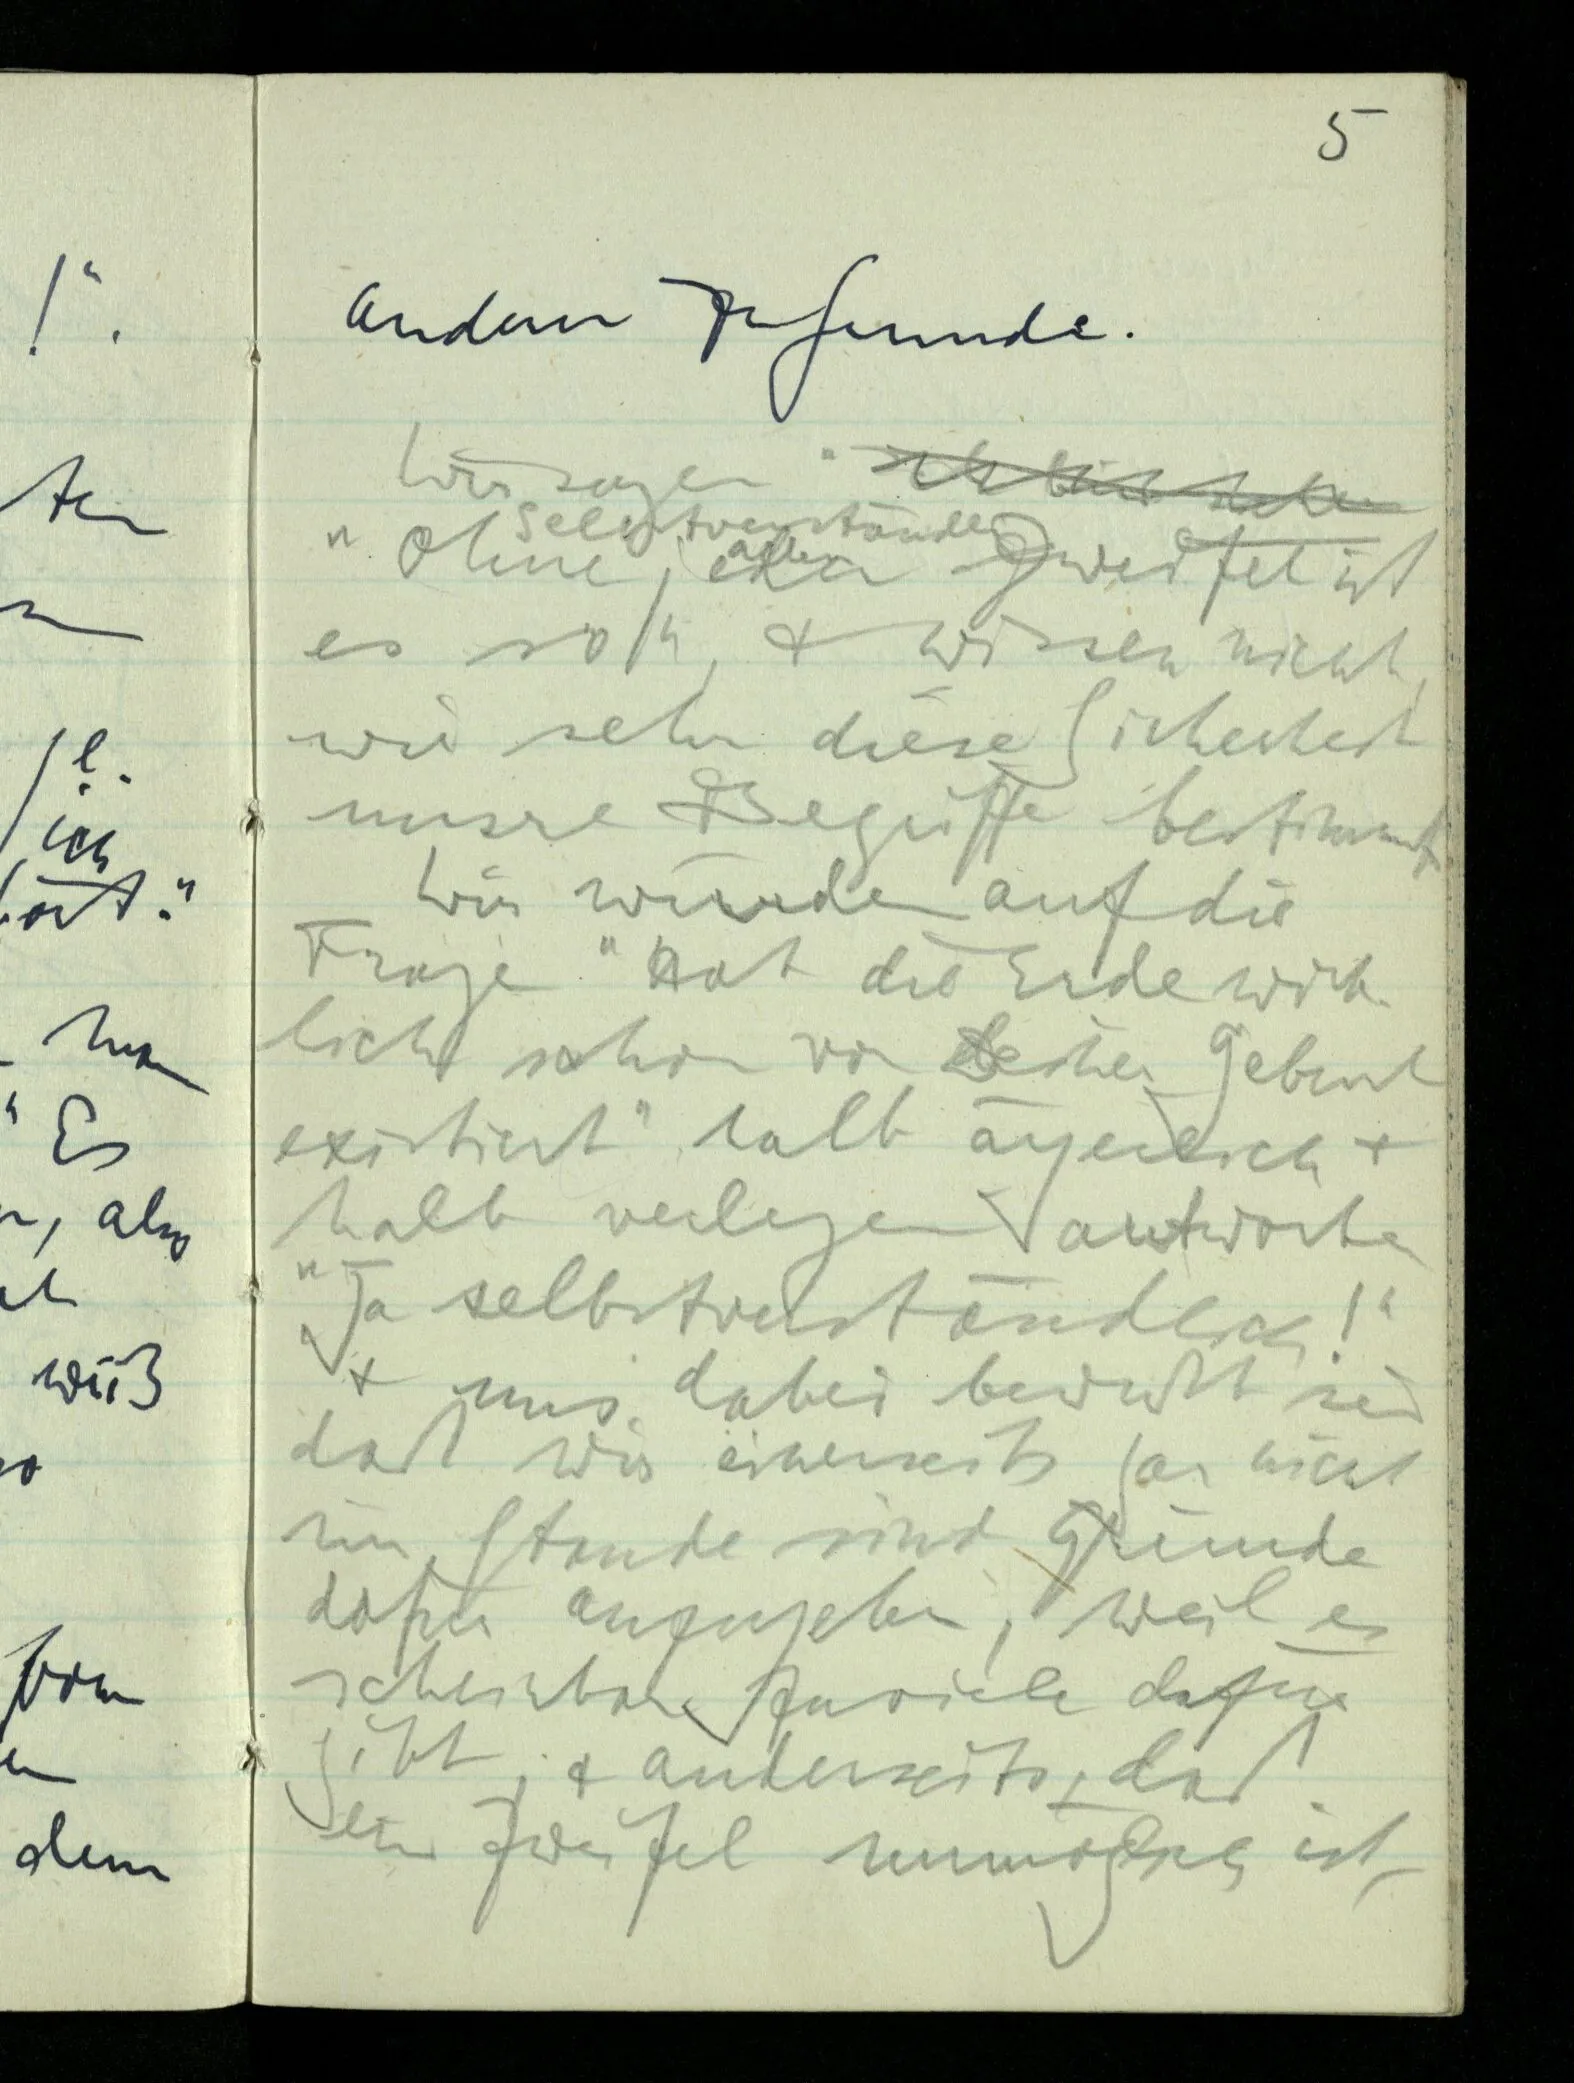 !“.
ten
l.
ich
man
“ Es
also
wüß
so
vom
dem
5
andern zu Grunde.
Wir sagen "
selbstverständlich
allen
"Ohne jeden Zweifel ist
es so“, + wissen nicht,
wie sehr diese Sicherheit
unsre Begriffe bestimmt
Wir würden auf die
Frage "Hat die Erde wirk-
lich schon vor deiner Geburt
existiert" halb ärgerlich +
halb verlegen antworten
"Ja selbstverständlich!“
+ uns dabei bewußt sein
daß wir einerseits gar nicht
im Stande sind Gründe
dafür anzugeben, weil es
scheinbar zuviele dafür
gibt, + anderseits, daß
ein Zweifel unmöglich ist,